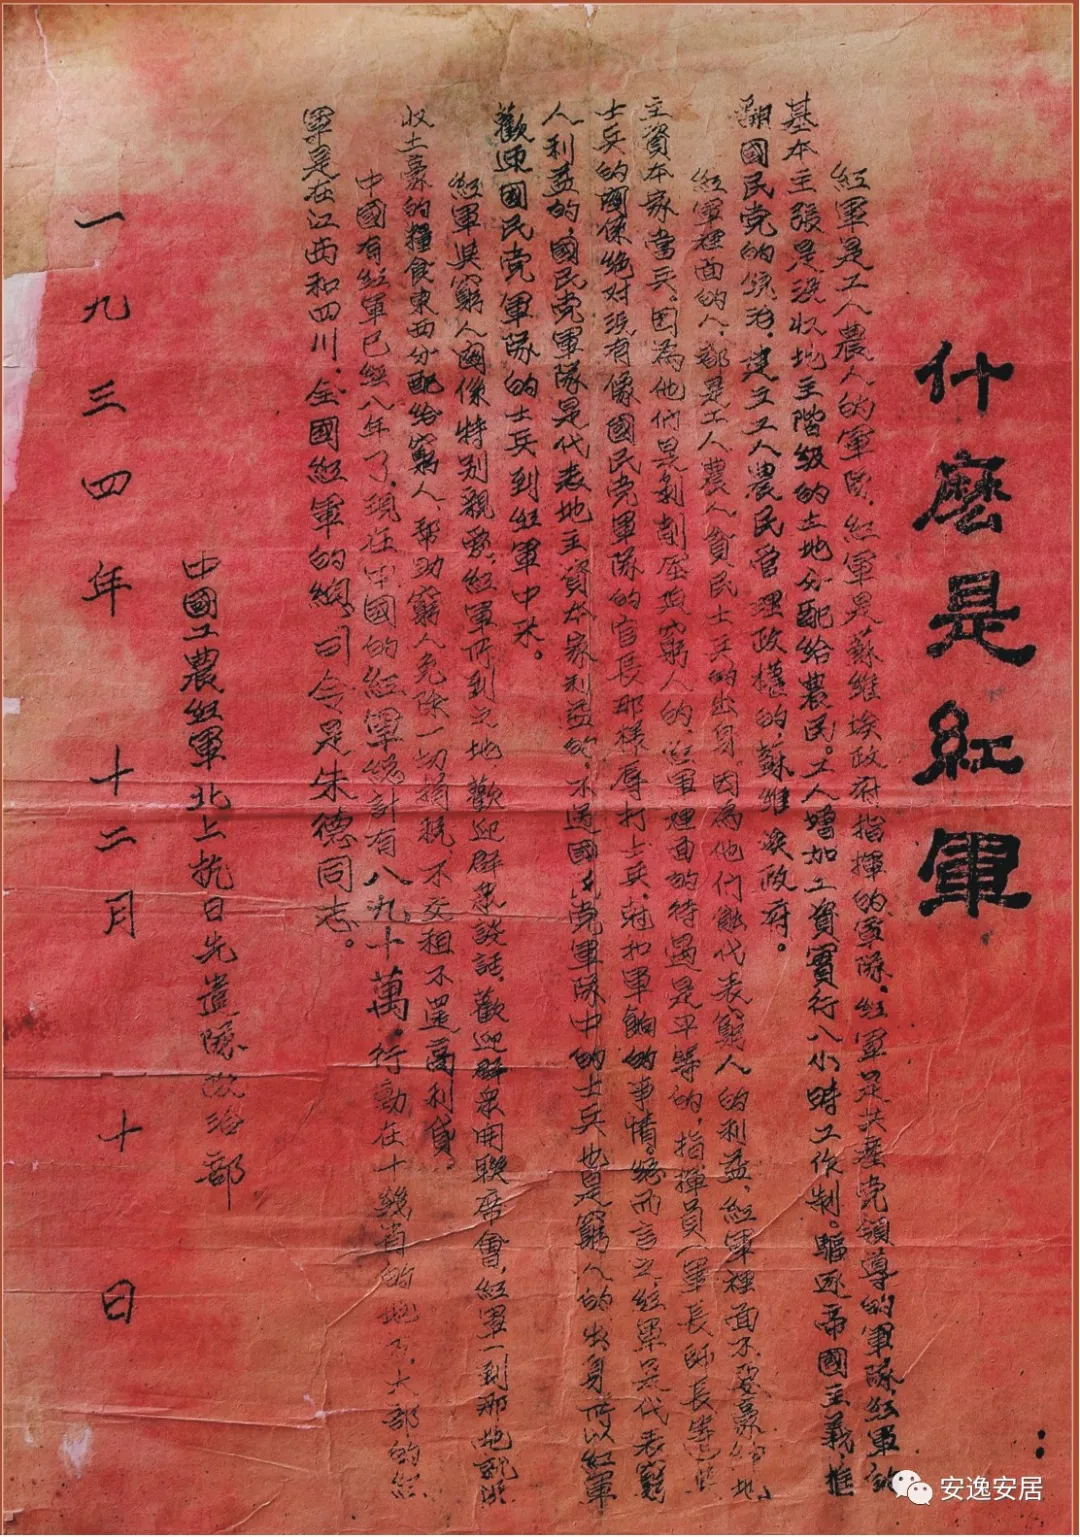 什麽是紅軍
紅軍是工人農人的軍隊，紅軍是蘇維埃政府指揮的軍隊，紅軍是共產党領導的軍隊，紅軍的
基本主張是没收地主階級的土地分配給農民。工人增加工資實行八小時工作制。驅逐帝國主義，推
翻國民党的統治，建立工人農民管理政權的，蘇維埃政府。
紅軍裡面的人，都是工人農人貧民士兵的出身，因為他們能代表窮人的利益，紅軍裡面不要豪紳地
主資本家當兵。因為他們是剝削壓迫窮人的，紅軍裡面的待遇是平等的，指揮員（軍長師長等）與
士兵的関係絶对没有像國民党軍隊的官長那樣辱打士兵，尅扣軍餉的事情。總而言之，紅軍是代表窮
人利益的，國民党軍隊是代表地主資本家利益的。不過國民党軍隊中的士兵也是窮人的出身，所以紅軍
歡迎國民党軍隊的士兵到紅軍中來。
紅軍與窮人関係特别親愛，紅軍所到之地歡迎群衆談話，歡迎群衆開聯席會，紅軍一到那地就没
收土豪的糧食東西分配給窮人，帮助窮人免除一切捐税，不交租不還高利貸。
中國有紅軍已經八年了，現在中國的紅軍總計有八九十萬，行動在十幾省的地方，大部的紅
軍是在江西和四川，全國紅軍的總司令是朱德同志。
中國工農紅軍北上抗日先遣隊政治部
一九三四年十二月十日
安逸安居